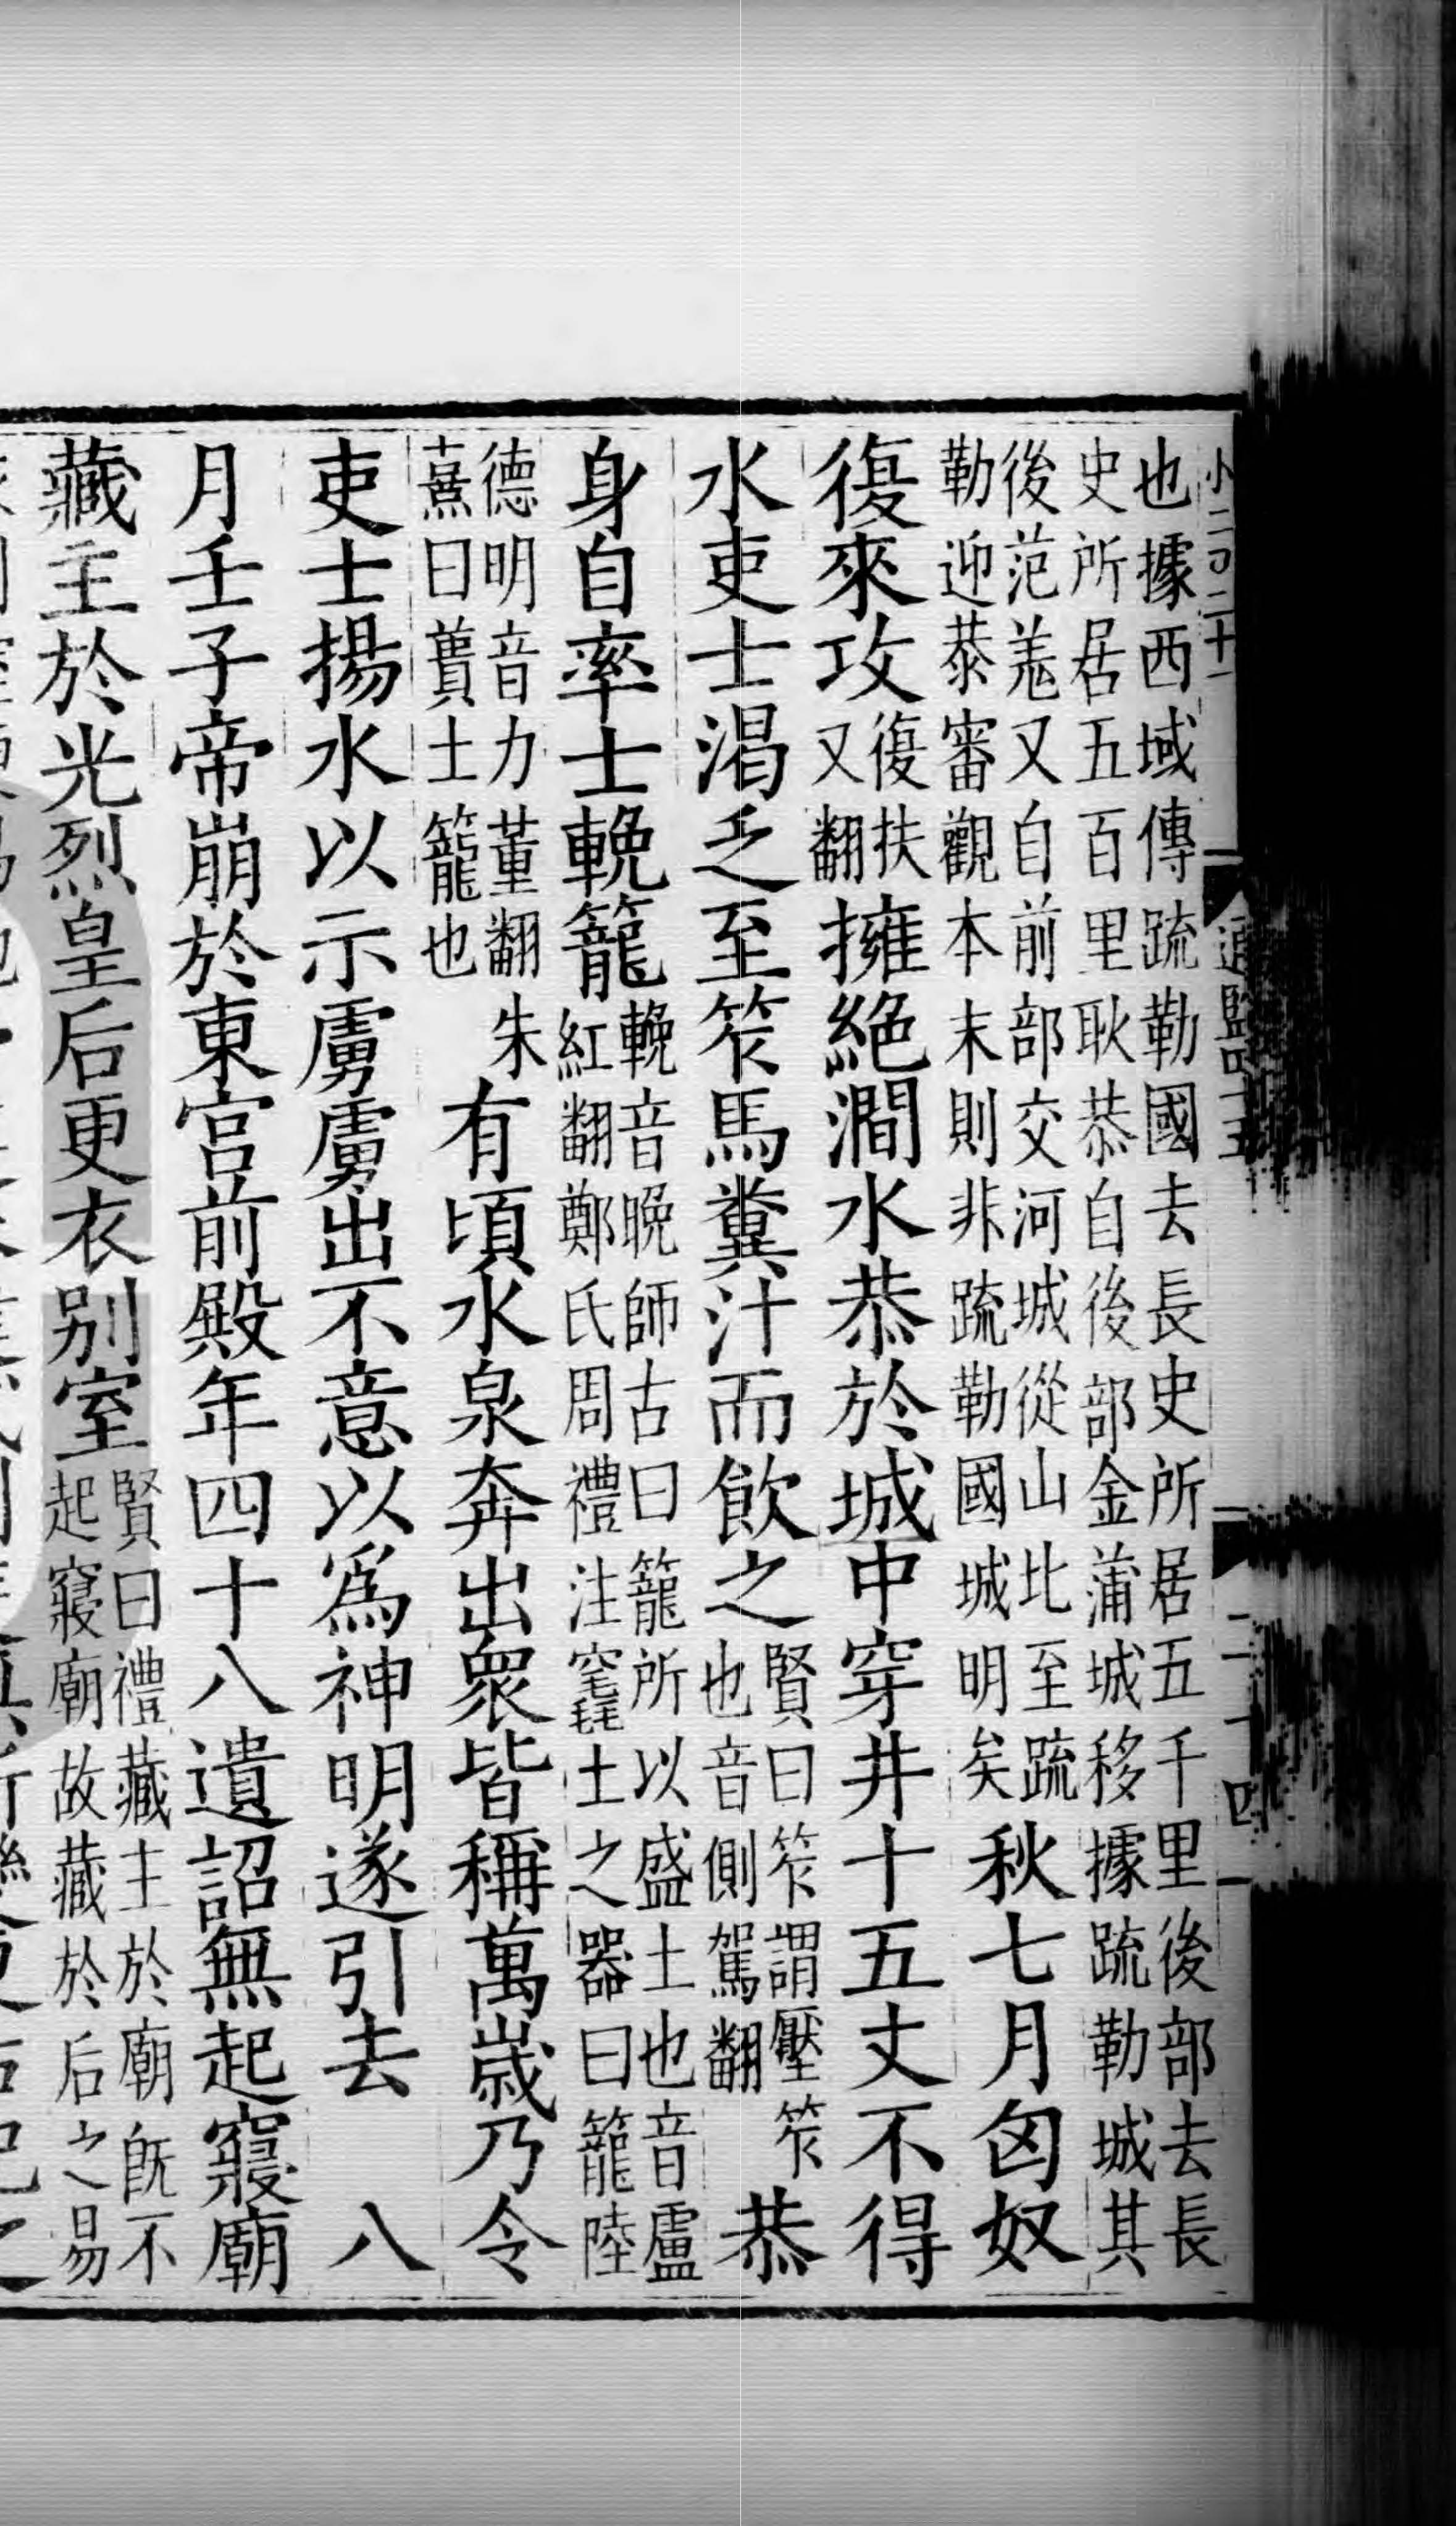 也據西域傳疏勒國去長史所居五千里後部去長
史所居五百里耿恭自後部金蒲城移據疏勒城其
後范羗又自前部交河城從山北至疏
勒迎恭審觀本末則非疏勒國城明矣
秋七月匈奴
復來攻
復扶
又翻
擁絶澗水恭於城中穿井十五丈不得
水吏士渴乏至笮馬糞汁而飲之
賢曰笮謂壓笮
也音側駕翻
恭
身自率士輓籠
輓音晚師古曰籠所以盛土也音盧
紅翻鄭氏周禮注窆毳土之器曰籠陸
德明音力董翻朱
熹曰蕢土籠也
有頃水泉奔出衆皆稱萬歲乃令
吏士揚水以示虜虜出不意以爲神明遂引去 八
月壬子帝崩於東宫前殿年四十八遺詔無起寢廟
藏主於光烈皇后更衣别室
賢曰禮藏主於廟旣不
起寢廟故藏於后之易